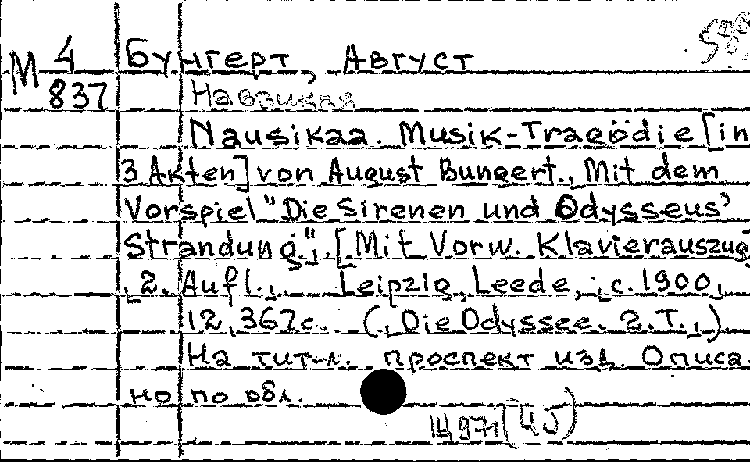 М 4 Бунгерт, Август
837 Навзикая
Nausikaa. Musik-Tragödie [in
3 Akten] von August Bungert., Mit dem
Vorspiel "Die Sirenen und Odysseus'
Strandung"., [Mit Vorw. Klavierauszug
2. Aufl., Leipzig, Leede, c. 1900,
12, 367 с. (Die Odyssee. 2. T.,)
На тит. л. проспект изд. Описа-
но по обл.
14971 (45)